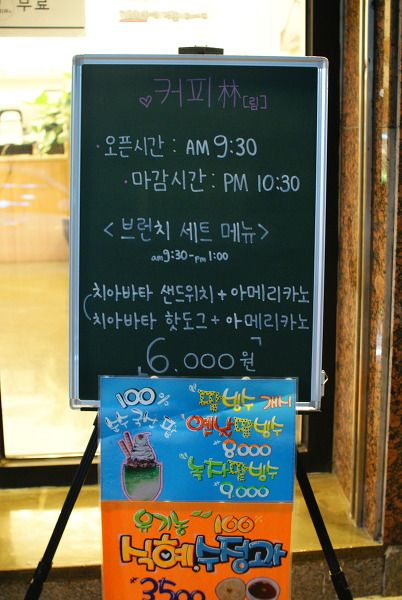 무료
커피林[림]
·오픈시간 : AM 9:30
·마감시간 : PM 10:30
<브런치 세트 메뉴>
am9:30-pm1:00
치아바타 샌드위치 + 아메리카노
치아바타 핫도그 + 아메리카노
6,000원
100%
국산 팥
팥빙수 개시
옛날팥빙수
8000
녹차팥빙수
9,000
유기농 100%
식혜·수정과
3500